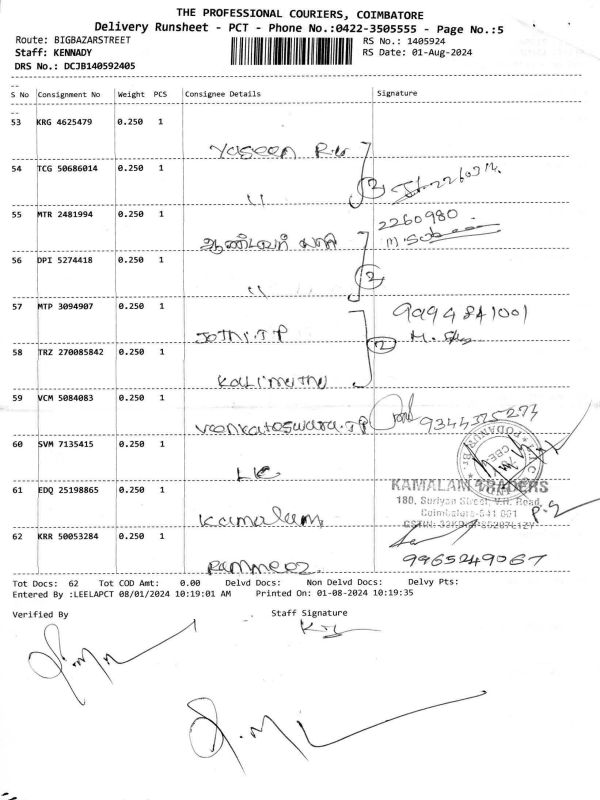 THE PROFESSIONAL COURIERS, COIMBATORE
Delivery Runsheet - PCT - Phone No.:0422-3505555 - Page No.:5
Route: BIGBAZARSTREET RS No.: 1405924
Staff: KENNADY RS Date: 01-Aug-2024
DRS No.: DCJB140592405
S No Consignment No Weight PCS Consignee Details Signature
53 KRG 4625479 0.250 1
Yaseen R.
54 TCG 50686014 0.250 1
" 2
55 MTR 2481994 0.250 1 2260980
ஆண்டவர்
56 DPI 5274418 0.250 1
" 2
57 MTP 3094907 0.250 1 9994841001
JOTHI.TP
58 TRZ 270085842 0.250 1 2
Kalimuthu
59 VCM 5084083 0.250 1
Venkateswara.TP 9344375273
60 SVM 7135415 0.250 1
LIC
61 EDQ 25198865 0.250 1 KAMALAM TRADERS
180, Suriyan Street, V.H. Road,
Coimbatore-641 001
Kamalam
62 KRR 50053284 0.250 1
9965249067
Tot Docs: 62 Tot COD Amt: 0.00 Delvd Docs: Non Delvd Docs: Delvy Pts:
Entered By :LEELAPCT 08/01/2024 10:19:01 AM Printed On: 01-08-2024 10:19:35
Verified By Staff Signature